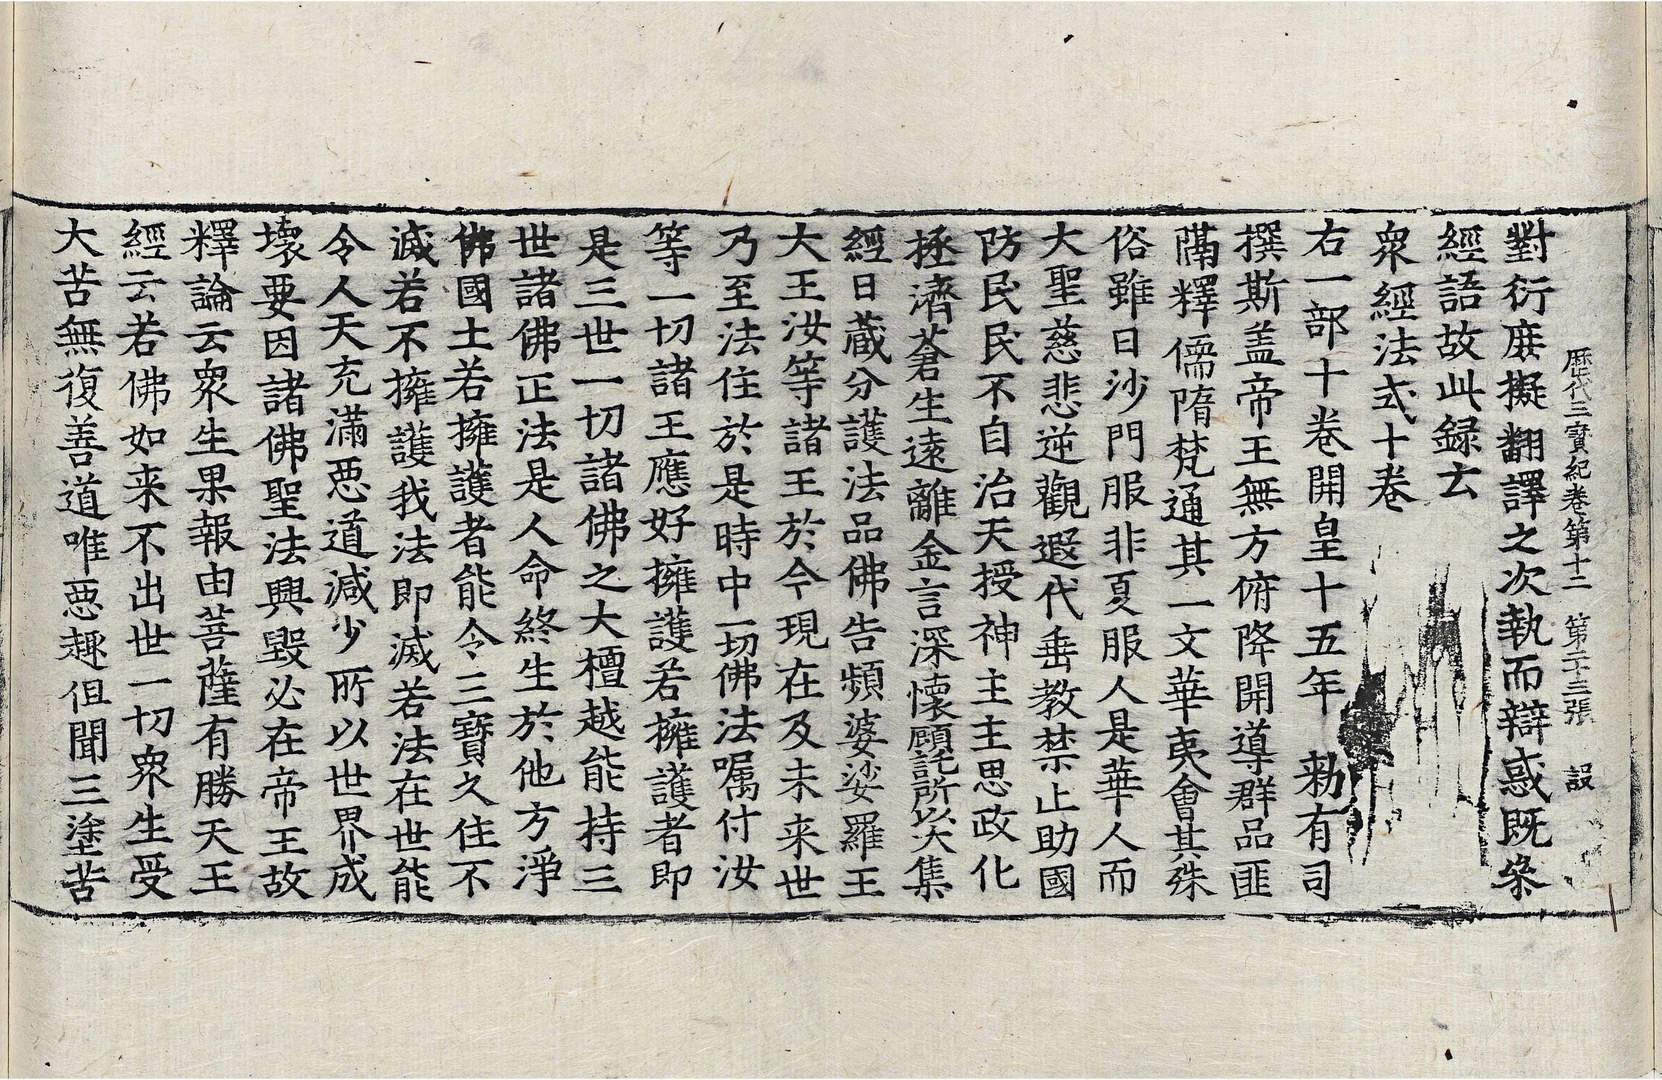 歷代三寶紀卷第十二 第二十三張 設
對衍庻擬翻譯之次執而辯惑既参
經語故此録云
衆經法式十卷
右一部十卷開皇十五年 勑有司
撰斯盖帝王無方俯降開導群品匪
隔釋儒隋梵通其一文華夷會其殊
俗雖曰沙門服非夏服人是華人而
大聖慈悲逆觀遐代垂教禁止助國
防民民不自治天授神主主思政化
拯濟蒼生遠離金言深懷顧託所以大集
經日蔵分護法品佛告頻婆娑羅王
大王汝等諸王於今現在及未来世
乃至法住於是時中一切佛法嘱付汝
等一切諸王應好擁護若擁護者即
是三世一切諸佛之大檀越能持三
世諸佛正法是人命終生於他方淨
佛國土若擁護者能令三寶久住不
滅若不擁護我法即滅若法在世能
令人天充滿惡道減少所以世界成
壊要因諸佛聖法興毀必在帝王故
釋論云衆生果報由菩薩有勝天王
經云若佛如来不出世一切衆生受
大苦無復善道唯惡趣但聞三塗苦